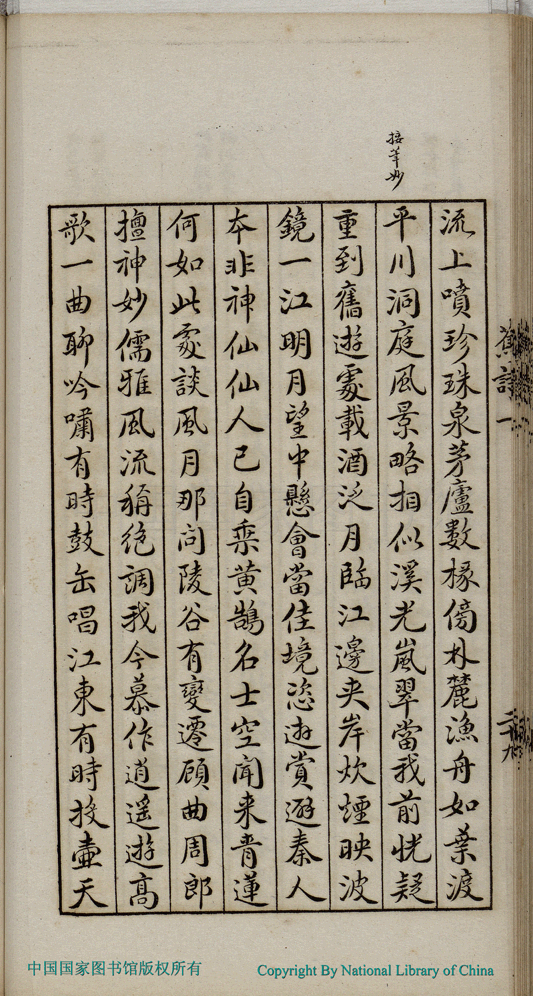 接筆妙
流上噴珍珠泉茅廬數椽傍林麓漁舟如葉渡
平川洞庭風景略相似溪光嵐翠當我前恍疑
重到舊遊處載酒泛月臨江邊夾岸炊煙映波
鏡一江明月望中懸會當佳境恣遊賞避秦人
本非神仙仙人已自乘黃鵠名士空聞來青蓮
何如此處談風月那問陵谷有變遷顧曲周郎
擅神妙儒雅風流稱絕調我今慕作逍遙遊高
歌一曲聊吟嘯有時鼓缶唱江東有時投壺天
詩一
二十九
中国国家图书馆版权所有
Copyright By National Library of China